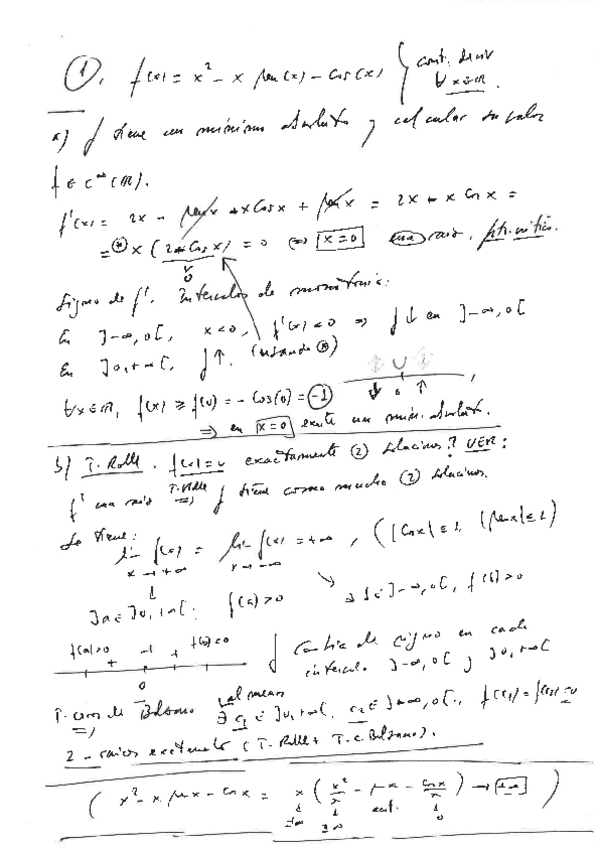 ①. f(x) = x² - x sen(x) - cos(x) } cont. deriv
∀ x ∈ ℝ.
a) f tiene un mínimo absoluto y calcular su valor
f ∈ C^∞(ℝ).
f'(x) = 2x - sen x - x cos x + sen x = 2x - x cos x =
=^(*) x (2 - cos x) = 0 ⇔ x = 0 una raíz, pto. crítico.
Signo de f'. Intervalos de monotonía:
En ]-∞, 0[, x < 0, f'(x) < 0 ⇒ f ↓ en ]-∞, 0[
En ]0, +∞[, f ↑. (usando (*))
↓ 0 ↑
∀x ∈ ℝ, f(x) ≥ f(0) = - cos(0) = -1
⇒ en x = 0 existe un mín. absoluto.
b) T. Rolle. f(x) = 0 exactamente ② soluciones? VER:
f' una raíz ⇒ T. Rolle f tiene como mucho ② soluciones.
Se tiene:
lim f(x) = lim f(x) = +∞, (|cos x| ≤ 1, |sen x| ≤ 1)
x → +∞ x → -∞
∃ a ∈ ]0, +∞[: f(a) > 0 ⇒ ∃ b ∈ ]-∞, 0[, f(b) > 0
+ -1 +
0
f cambia de signo en cada
intervalo ]-∞, 0[ y ]0, +∞[
T. ceros de Bolzano ⇒ al menos ∃ c₁ ∈ ]0, +∞[, c₂ ∈ ]-∞, 0[, f(c₁) = f(c₂) = 0
2 raíces exactamente (T. Rolle + T. c. Bolzano).
( x² - x sen x - cos x = x ( x²/x - sen x - cos x/x ) → +∞ )
±∞ ±∞ acot. 0